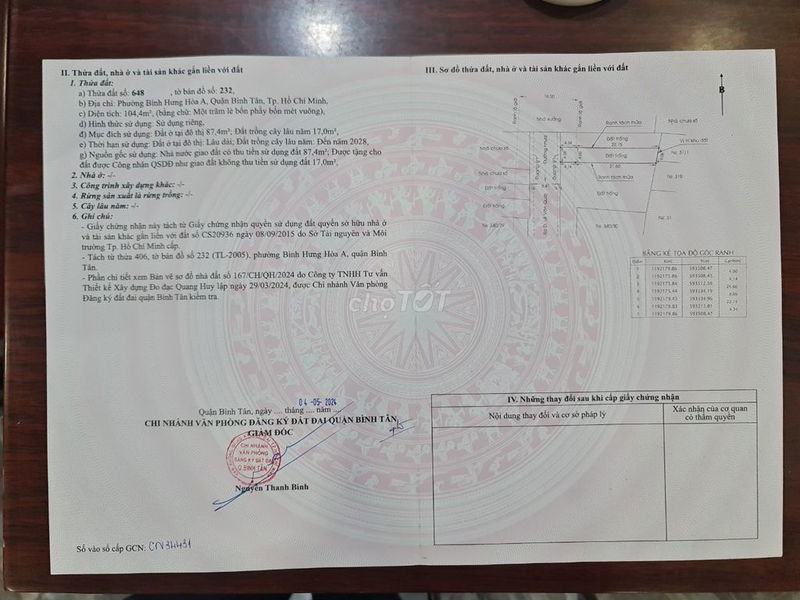 II. Thửa đất, nhà ở và tài sản khác gắn liền với đất
1. Thửa đất:
a) Thửa đất số: 648 , tờ bản đồ số: 232,
b) Địa chỉ: Phường Bình Hưng Hòa A, Quận Bình Tân, Tp. Hồ Chí Minh,
c) Diện tích: 104,4m², (bằng chữ: Một trăm lẻ bốn phẩy bốn mét vuông),
d) Hình thức sử dụng: Sử dụng riêng,
đ) Mục đích sử dụng: Đất ở tại đô thị 87,4m²; Đất trồng cây lâu năm 17,0m²,
e) Thời hạn sử dụng: Đất ở tại đô thị: Lâu dài; Đất trồng cây lâu năm: Đến năm 2028,
g) Nguồn gốc sử dụng: Nhà nước giao đất có thu tiền sử dụng đất 87,4m²; Được tặng cho
đất được Công nhận QSDĐ như giao đất không thu tiền sử dụng đất 17,0m²,
2. Nhà ở: -/-
3. Công trình xây dựng khác: -/-
4. Rừng sản xuất là rừng trồng: -/-
5. Cây lâu năm: -/-
6. Ghi chú:
- Giấy chứng nhận này tách từ Giấy chứng nhận quyền sử dụng đất quyền sở hữu nhà ở
và tài sản khác gắn liền với đất số CS20936 ngày 08/09/2015 do Sở Tài nguyên và Môi
trường Tp. Hồ Chí Minh cấp.
- Tách từ thửa 406, tờ bản đồ số 232 (TL-2005), phường Bình Hưng Hòa A, quận Bình
Tân.
- Phần chi tiết xem Bản vẽ sơ đồ nhà đất số 167/CH/QH/2024 do Công ty TNHH Tư vấn
Thiết Kế Xây dựng Đo đạc Quang Huy lập ngày 29/03/2024, được Chi nhánh Văn phòng
Đăng ký đất đai quận Bình Tân kiểm tra.
04-05-2024
Quận Bình Tân, ngày .... tháng .... năm ....
CHI NHÁNH VĂN PHÒNG ĐĂNG KÝ ĐẤT ĐAI QUẬN BÌNH TÂN
GIÁM ĐỐC
CHI NHÁNH
VĂN PHÒNG
ĐĂNG KÝ ĐẤT ĐAI
Q.BÌNH TÂN
Nguyễn Thanh Bình
Số vào sổ cấp GCN: CN34431
choTOT
III. Sơ đồ thửa đất, nhà ở và tài sản khác gắn liền với đất
B
16.00
Nhà xưởng
Ranh tách thửa
Nhà chưa số
Đất trống
Vị trí khu đất
Nhà chưa số
Đất trống
Ranh tách thửa
21.60
Đất trống
Đất trống
BẢNG KÊ TỌA ĐỘ GÓC RANH
IV. Những thay đổi sau khi cấp giấy chứng nhận
Nội dung thay đổi và cơ sở pháp lý
Xác nhận của cơ quan
có thẩm quyền